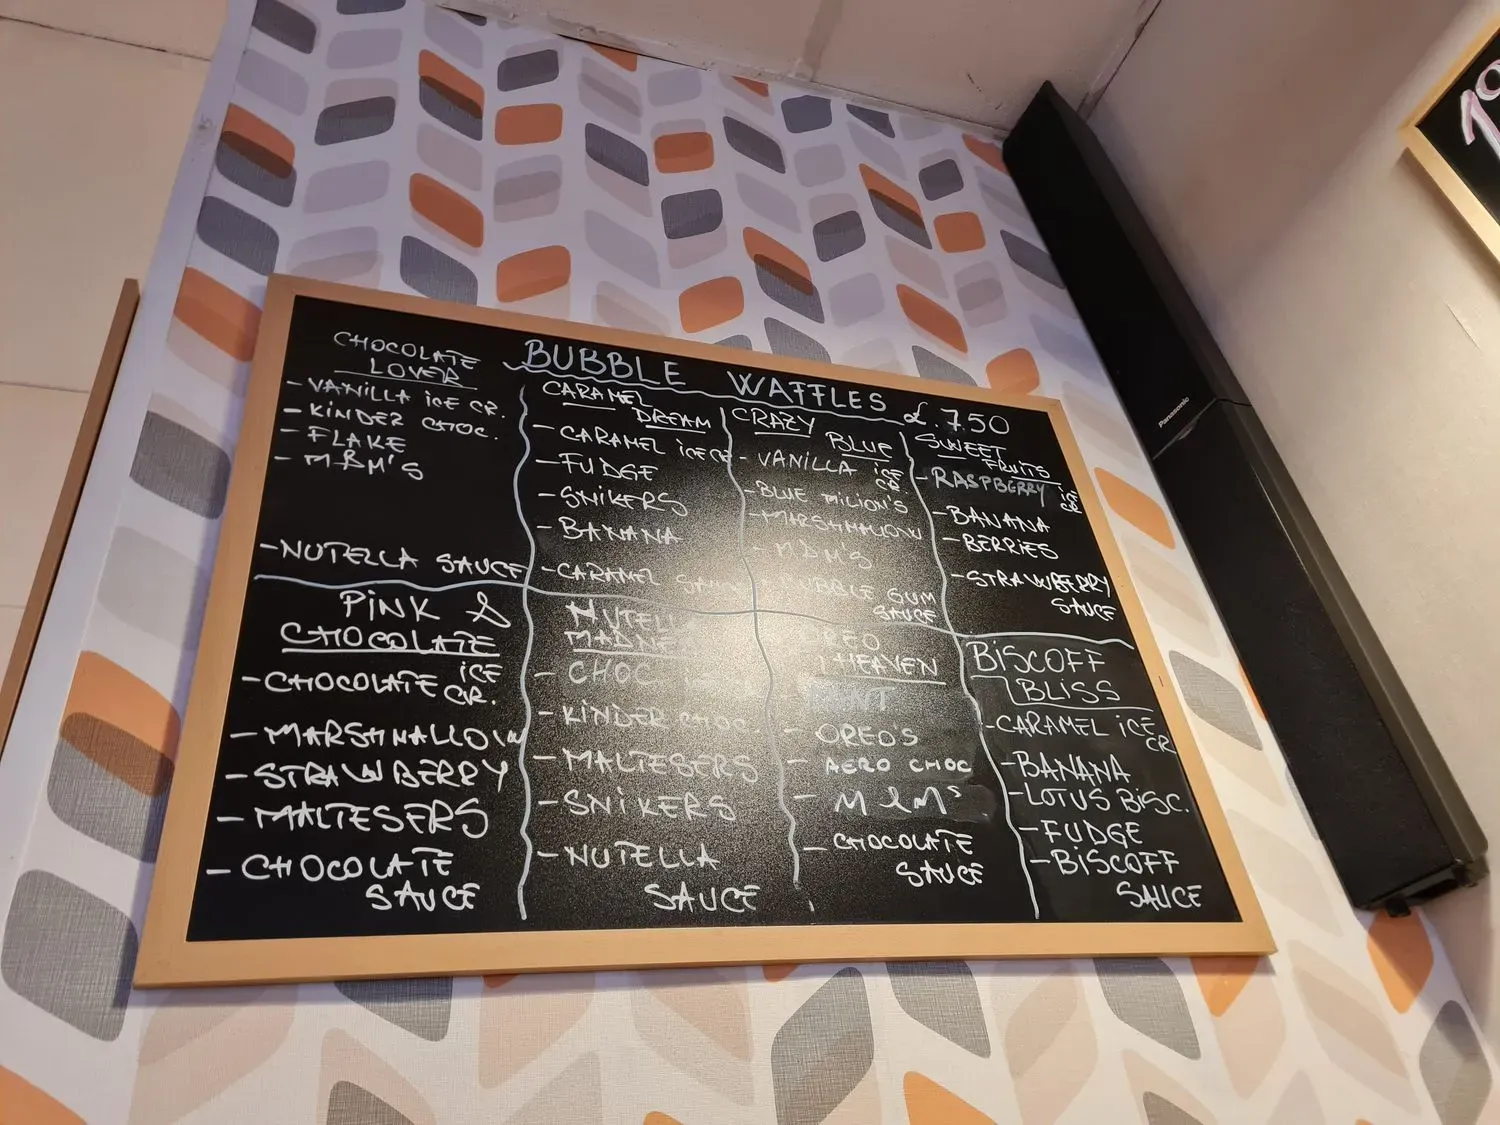 BUBBLE WAFFLES £.750
CHOCOLATE
LOVER
-VANILLA ICE CR.
-KINDER CHOC.
-FLAKE
-M&M'S
-NUTELLA SAUCE
CARAMEL
DREAM
-CARAMEL ICE CR
-FUDGE
-SNIKERS
-BANANA
-CARAMEL SAUCE
CRAZY
BLUE
-VANILLA ICE
CR.
-BLUE MILION'S
-MARSHMALLOW
-M&M'S
-BUBBLE GUM
SAUCE
SWEET
FRUITS
-RASPBERRY ICE
CR.
-BANANA
-BERRIES
-STRAWBERRY
SAUCE
PINK &
CHOCOLATE
-CHOCOLATE ICE
CR.
-MARSHMALLOW
-STRAWBERRY
-MALTESERS
-CHOCOLATE
SAUCE
NUTELLA
MADNESS
-CHOC
-KINDER CHOC.
-MALTESERS
-SNIKERS
-NUTELLA
SAUCE
OREO
HEAVEN
MINT
-OREO'S
-AERO CHOC
-M&M's
-CHOCOLATE
SAUCE
BISCOFF
BLISS
-CARAMEL ICE
CR
-BANANA
-LOTUS BISC.
-FUDGE
-BISCOFF
SAUCE
Panasonic